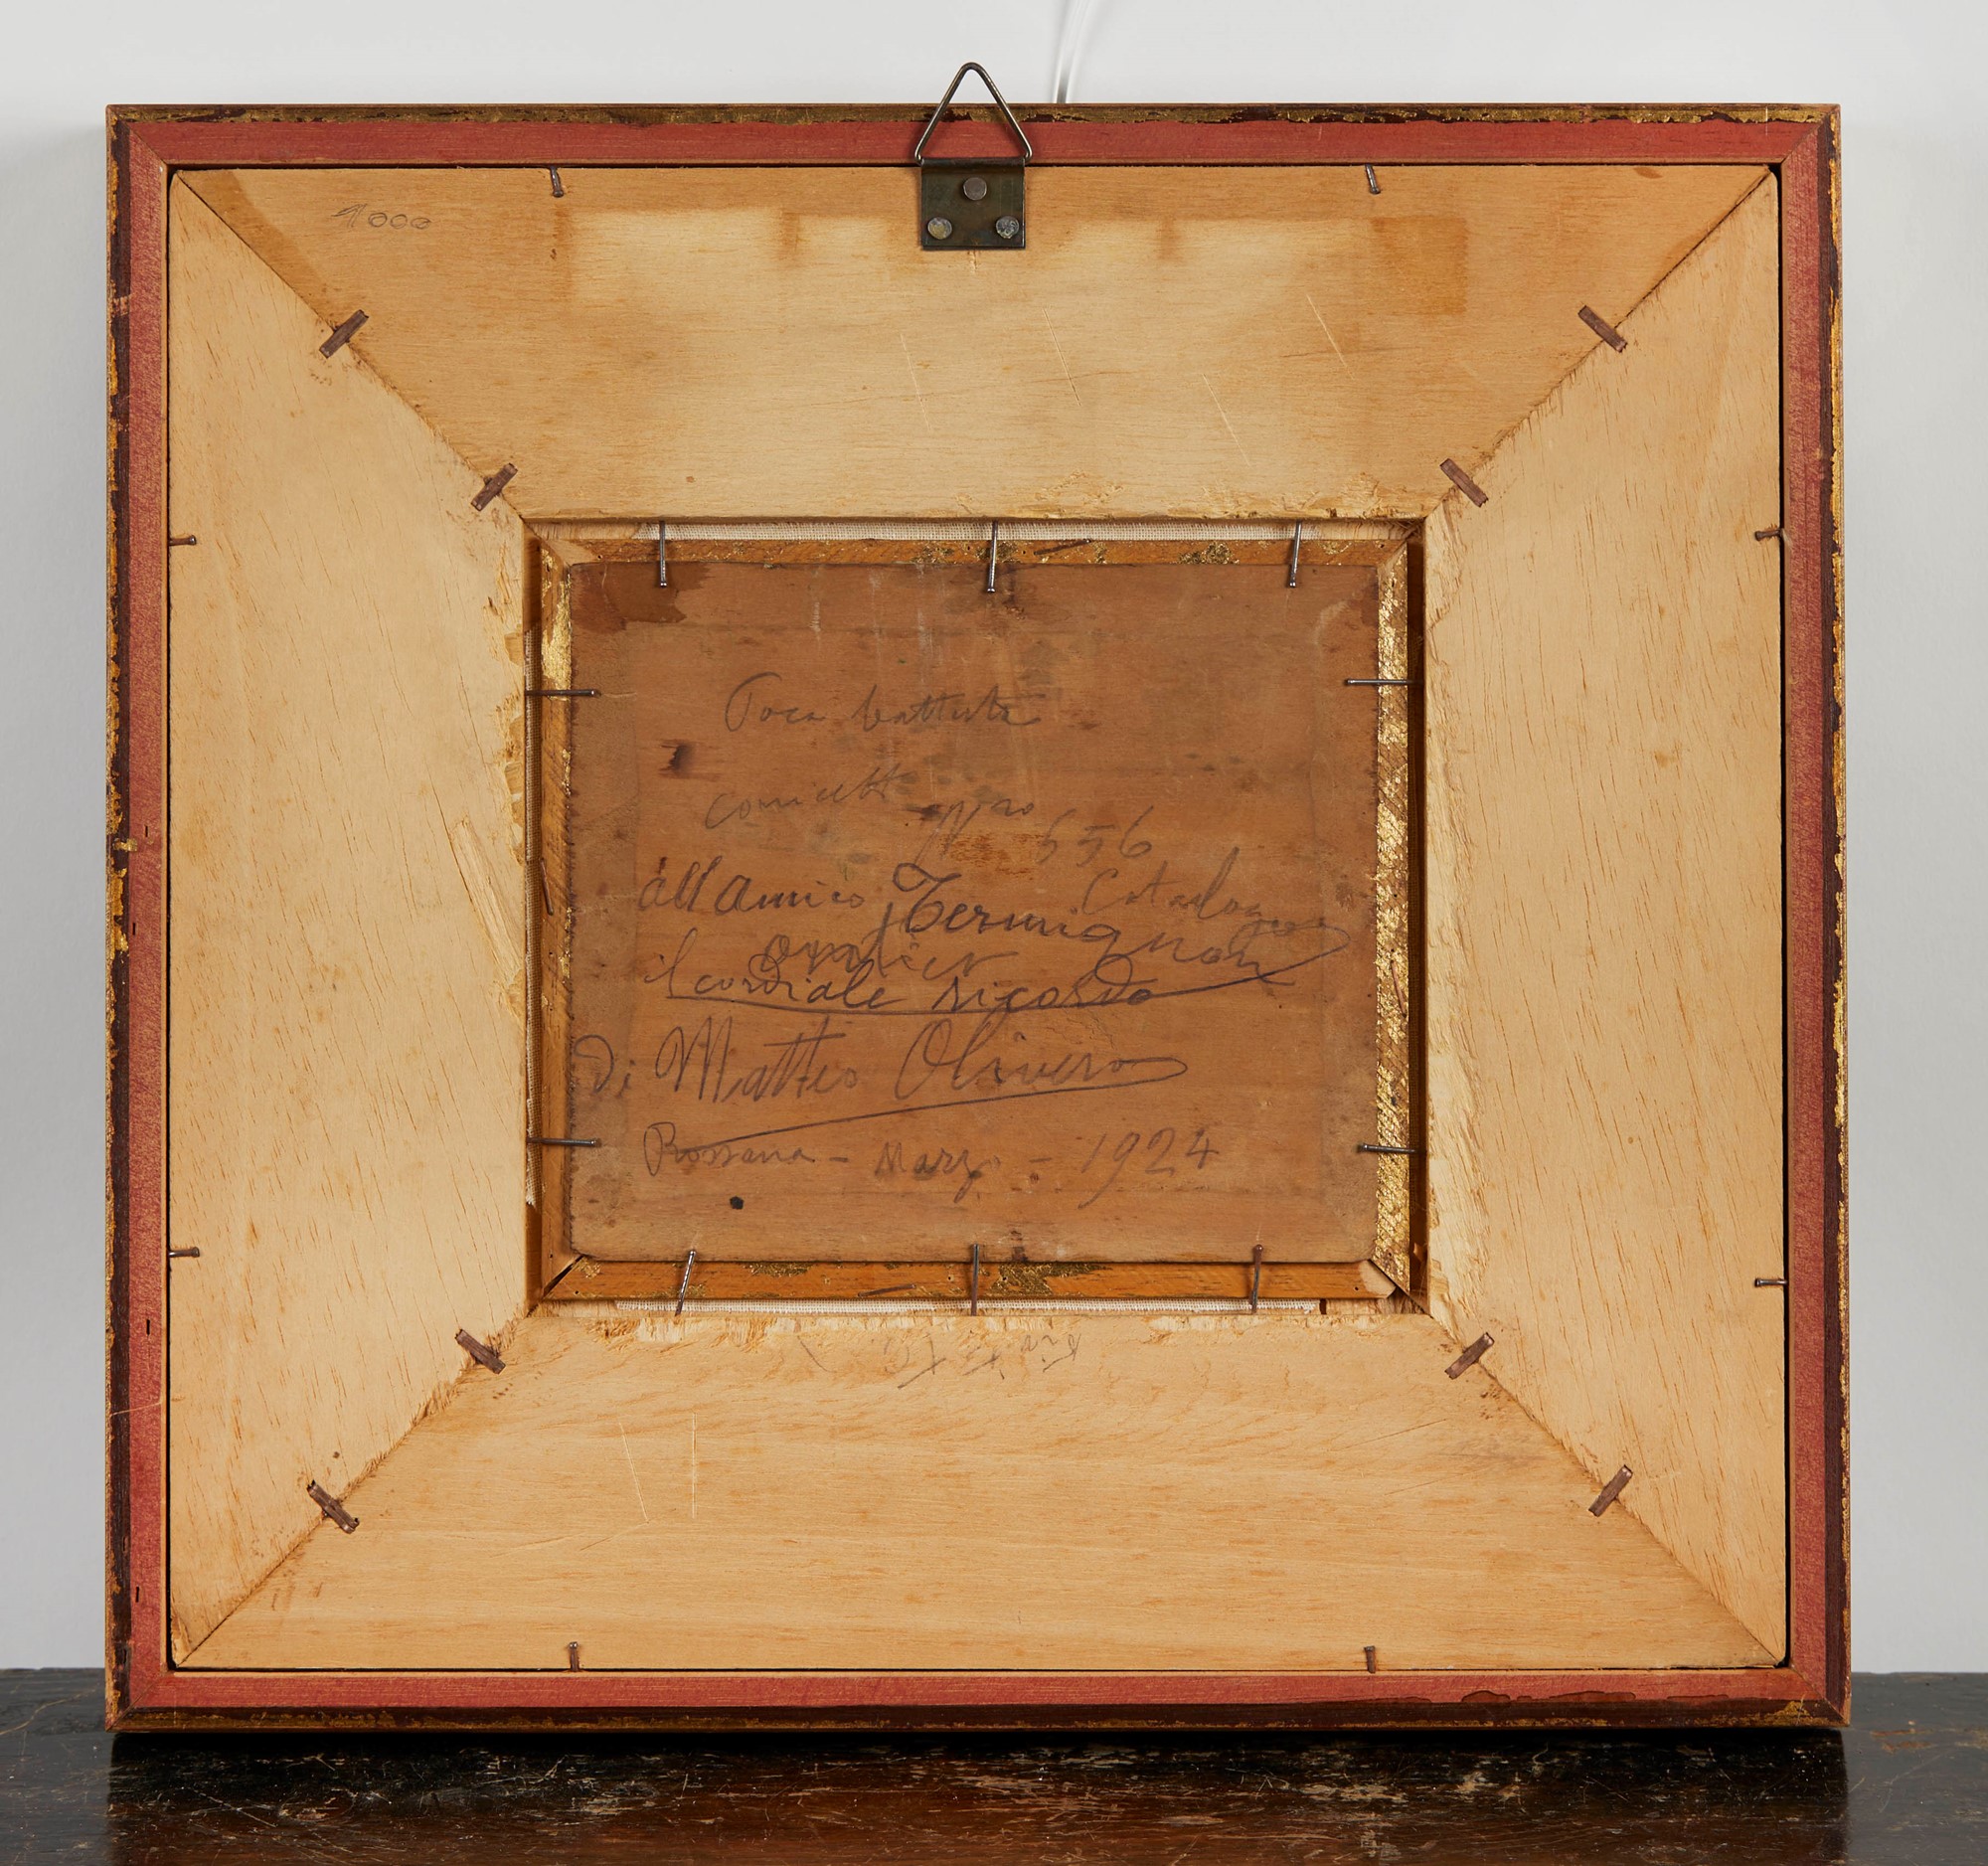 1000
Poca battuta
Nro 656
all'Amico Termignon
Catalogo
il cordiale ricordo
di Matteo Olivero
Rossana - Marzo - 1924